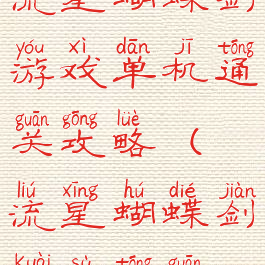 流星蝴蝶剑
yóu xì dān jī tōng
游戏单机通
guān gōng lüè
关攻略（
liú xīng hú dié jiàn
流星蝴蝶剑
kuài sù tōng guān